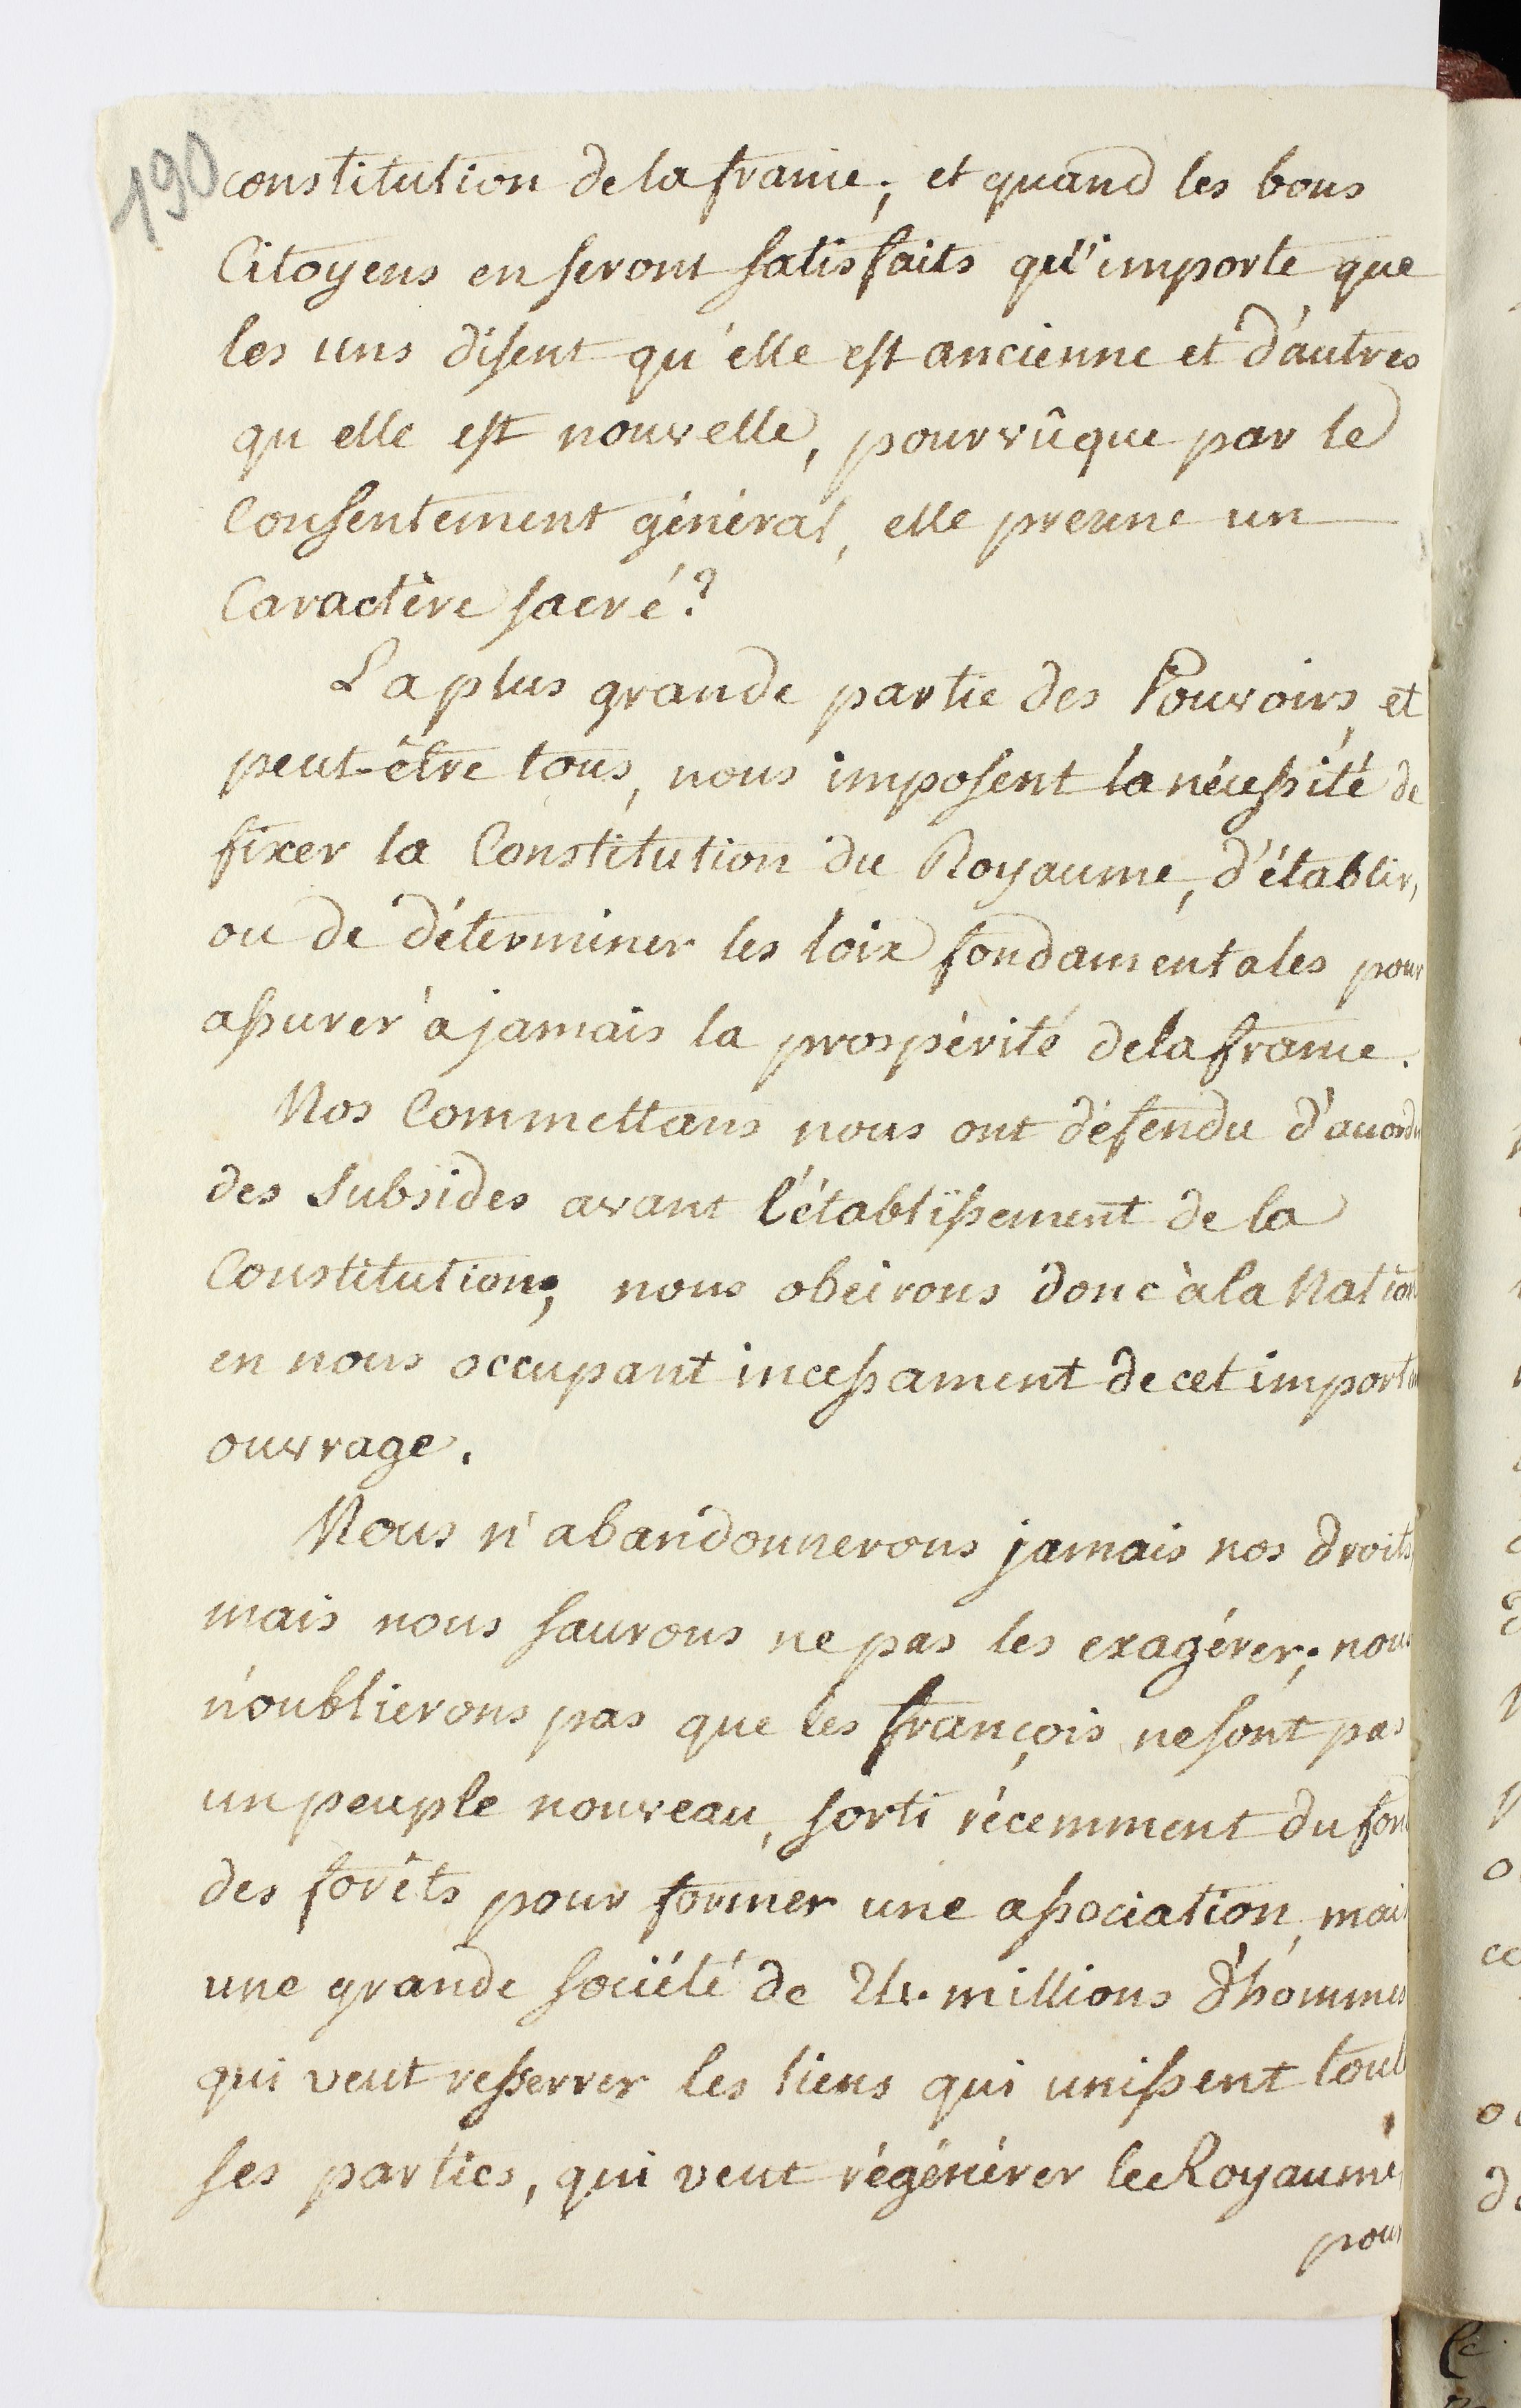 190
constitution de la france; et quand les bons
Citoyens en seront satisfaits qu'importe que
les uns disent qu'elle est ancienne et d'autres
qu elle est nouvelle, pourvûque par le
Consentement général, elle prenne un
Caractère sacré?
La plus grande partie des Pouvoirs, et
peut-être tous, nous imposent la nécessité de
fixer la Constitution du Royaume, d'établir,
ou de déterminer les loix fondamentales pour
assurer à jamais la prospérité de la france.
Nos Commettans nous ont défendu
des subsides avant l'établissement de la
Constitution; nous obéirons donc à la Nation
en nous occupant incessament de cet
ouvrage.
Nous n'abandonnerons jamais nos droits
mais nous saurons ne pas les exagérer; nous
n'oublierons pas que les françois ne sont pas
un peuple nouveau, sorti récemment du
des forêts pour former une association, mais
une grande société de 24. millions d'hommes
qui veut resserrer les liens qui unissent
ses parties, qui veut régénérer le Royaume,
pour